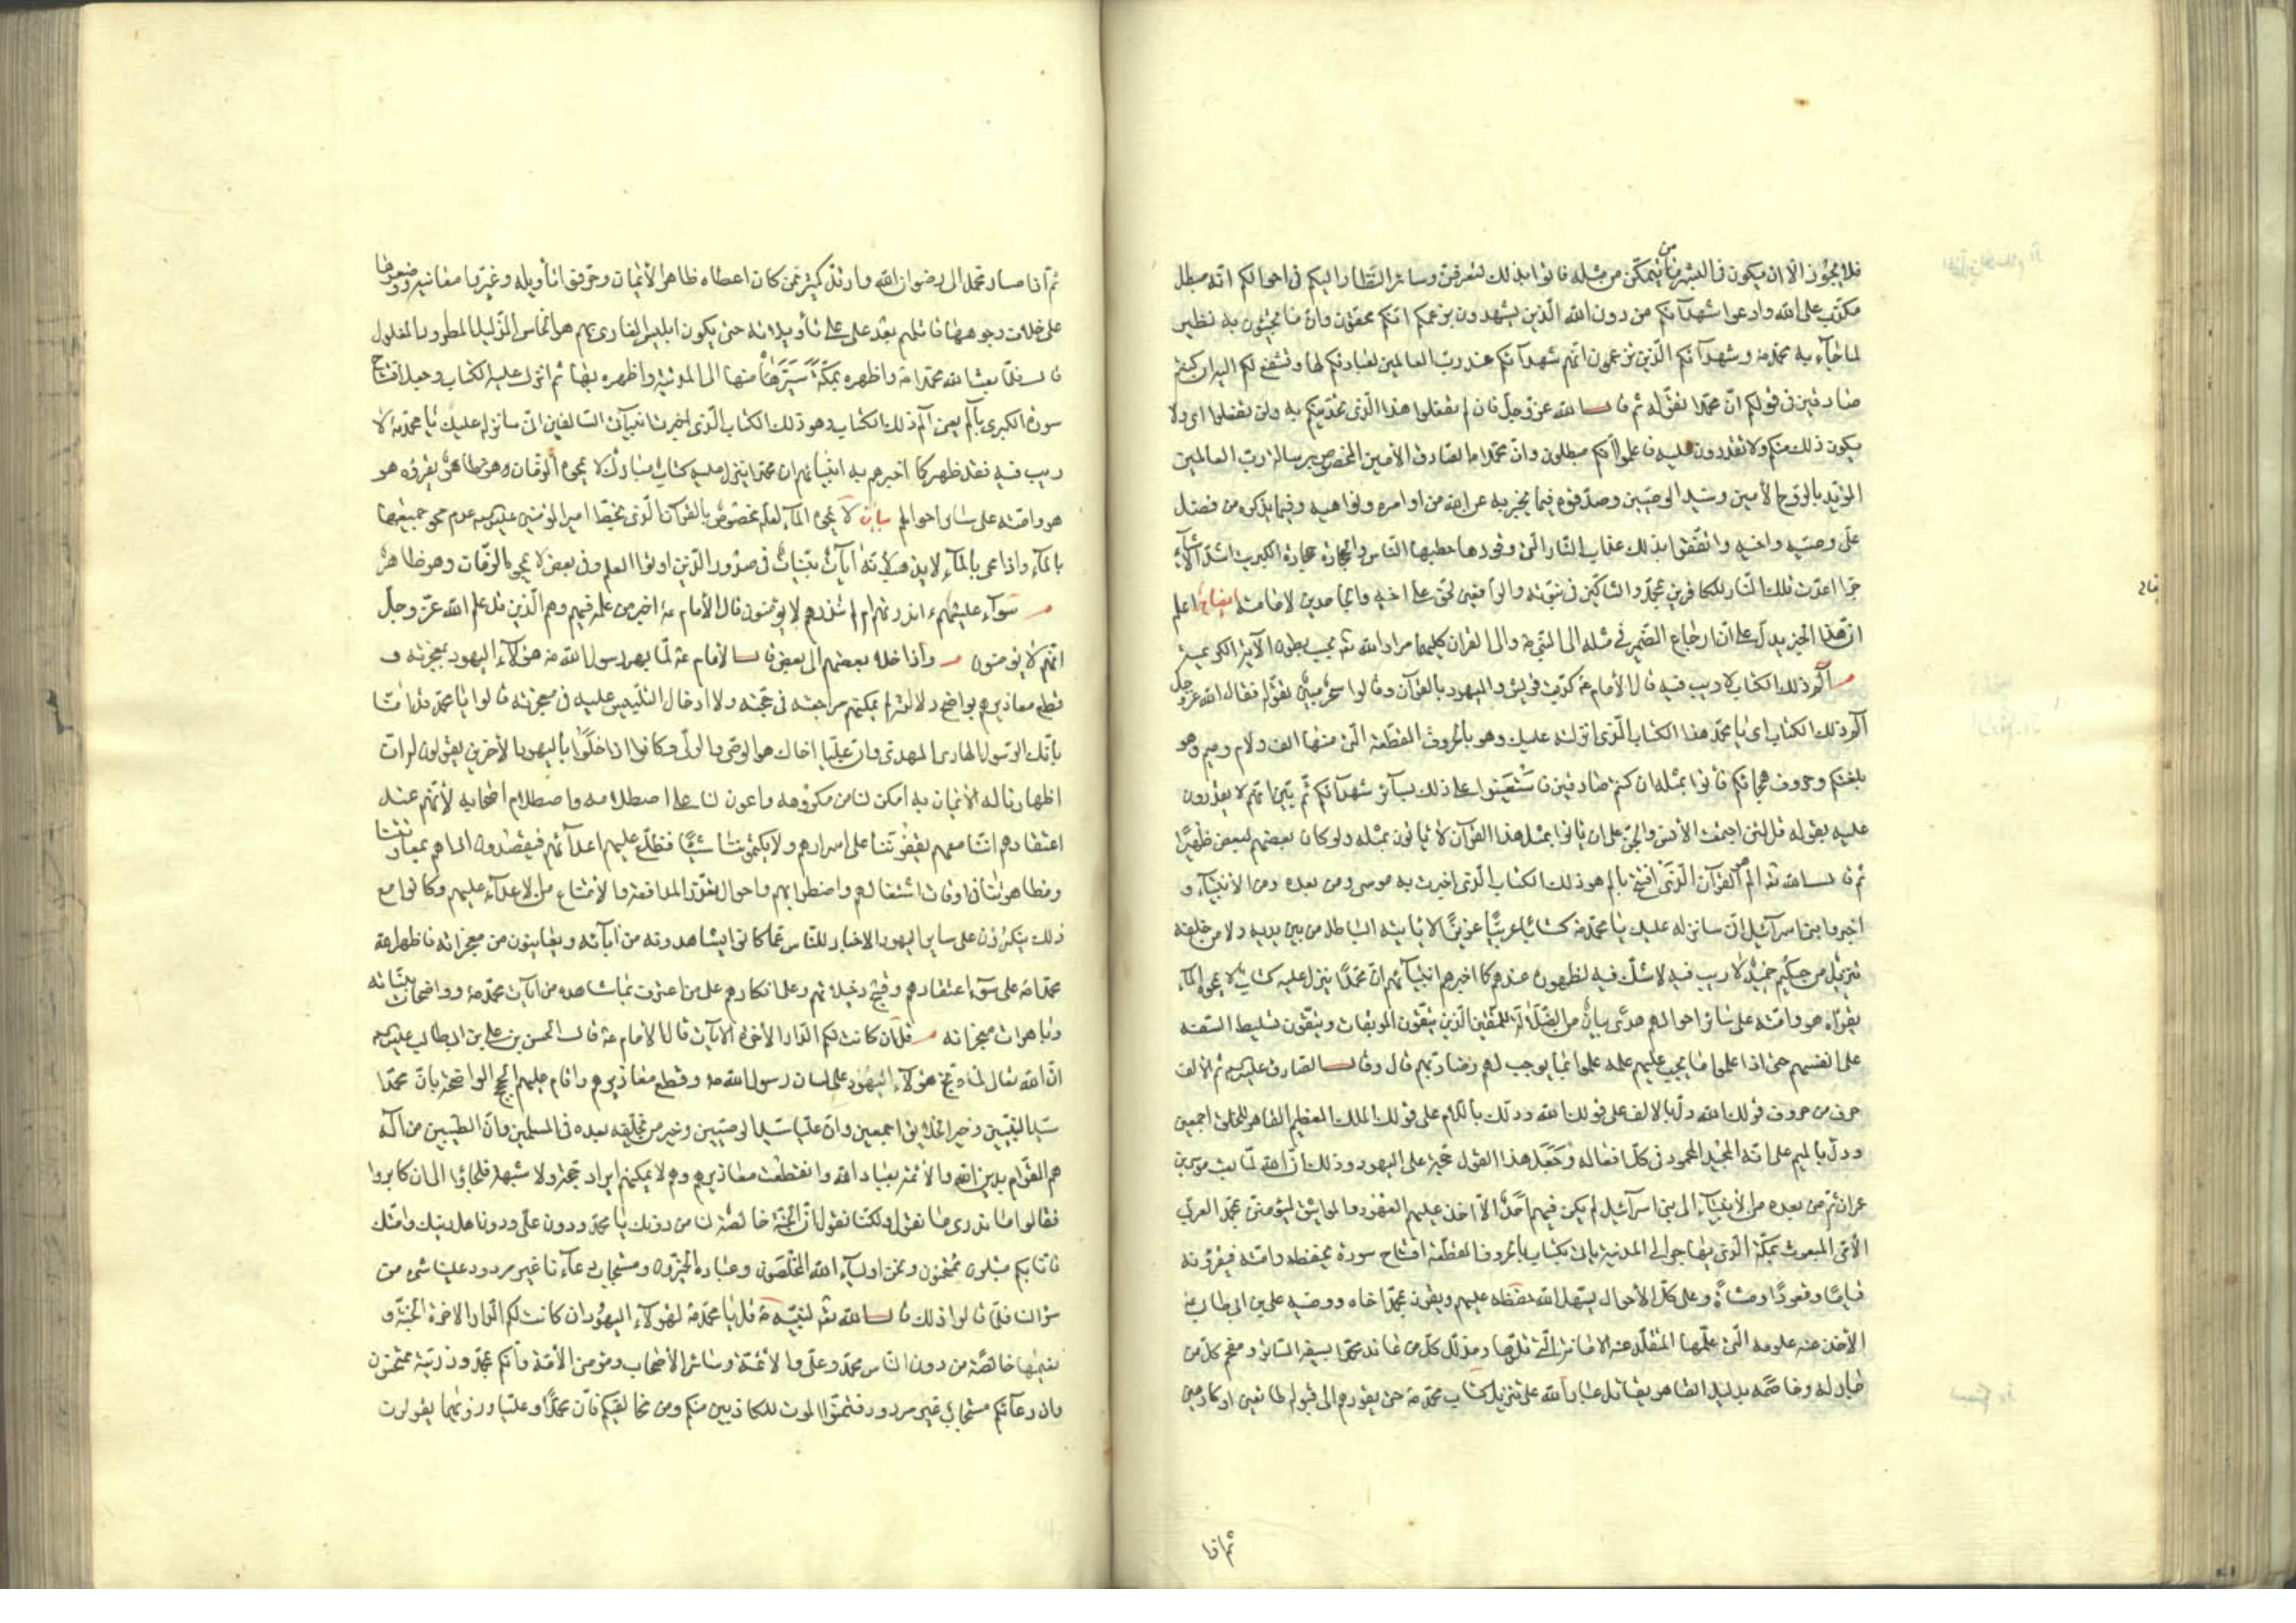 فلا يجوز الا ان يكون في البشر من يتمكن من مثله فاتوا بذلك لتعرفوه وسائر النظار اليكم في احوالكم انه مبطل
مكذب على الله وادعوا شهدآءكم من دون الله الذين يشهدون بزعمكم انكم محقون وان ما تجيئون به نظير
لما جآء به محمد ص وشهدآءكم الذين تزعمون انهم شهدآءكم عند رب العالمين لعبادتكم لها وتشفع لكم اليه ان كنتم
صادقين في قولكم ان محمدا تقوله ثم قال الله عز وجل فان لم تفعلوا هذا الذي تحديتكم به ولن تفعلوا اي ولا
يكون ذلك منكم ولا تقدرون عليه فاعلموا انكم مبطلون وان محمدا الصادق الأمين المخصوص برسالة رب العالمين
المؤيد بالروح الأمين وسيد الوصيين وصدقوه فيما يخبر به عن الله من اوامره ونواهيه وفيما يذكره من فضل
على وصيه واخيه واتقوا بذلك عذاب النار التي وقودها حطبها الناس والحجارة حجارة الكبريت اشد الأشيآء
حرا اعدت تلك النار للكافرين بمحمد والشاكين في نبوته والدافعين لحق على اخيه والجاحدين لامامته اعلم
ان هذا الخبر يدل على ان ارجاع الضمير في مثله الى النبي ص والى القران كليهما مراد الله تع بحسب بطون الآية الكريمة
الم ذلك الكتاب لا ريب فيه قال الأمام ع كذبت قريش واليهود بالقرآن وقالوا سحر مبين تقوله فقال الله عز وجل
الم ذلك الكتاب اي يا محمد هذا الكتاب الذي انزلته عليك وهو بالحروف المقطعة التي منها الف ولام وميم وهو
بلغتكم وحروف هجائكم فأتوا بمثله ان كنتم صادقين فاستعينوا على ذلك بسآئر شهدآئكم ثم بين انهم لا يقدرون
عليه بقوله قل لئن اجتمعت الأنس والجن على ان يأتوا بمثل هذا القرآن لا يأتون بمثله ولو كان بعضهم لبعض ظهيرا
ثم قال الله تع الم هو القرآن الذي افتتح بالم هو ذلك الكتاب الذي اخبرت به موسى ومن بعده من الأنبيآء و
اخبروا بني اسرآئيل اني سانزله عليك يا محمد ص كتابا عربيا عزيزا لا يأتيه الباطل من بين يديه ولا من خلفه
تنزيل من حكيم حميد لا ريب فيه لا شك فيه لظهوره عندهم كما اخبرهم انبيآئهم ان محمدا ينزل عليه كتاب لا يمحوه المآء
يقرؤه هو وامته على سائر احوالهم هدى بيان من الضلالة للمتقين الذين يتقون الموبقات ويتقون تسليط السفه
على انفسهم حتى اذا علموا ما يجب عليهم علمه عملوا بما يوجب لهم رضا ربهم قال وقال الصادق عليه السلام ثم الألف
حرف من حروف قولك الله دل بالالف على قولك الله ودلك باللام على قولك الملك العظيم القاهر للخلق اجمعين
ودل بالميم على انه المجيد المحمود في كل افعاله وجعل هذا القول حجة على اليهود وذلك ان الله لما بعث موسى بن
عمران ثم من بعده من الأنبيآء الى بني اسرآئيل لم يكن فيهم احد الا اخذ عليهم العهود والمواثيق ليؤمنن بمحمد العربي
الأمي المبعوث بمكة الذي يهاجر الى المدينة يأتي بكتاب بالحروف المقطعة افتتاح سورة يحفظه وامته فيقرؤنه
قياما وقعودا ومشاة وعلى كل الأحوال يسهل الله حفظه عليهم ويقرن بمحمد اخاه ووصيه علي بن ابي طالب ع
الأخذ عنه علومه التي علمها المتقلد عنه الامانة التي قلدها ومذلل كل من عاند محمدا بسيفه الباتر ومفحم كل من
جادله وخاصمه بدليله القاهر يقاتل عباد الله على تنزيل كتاب محمد ص حتى يقودهم الى قبوله طائعين او كارهين
ثم اذا
ثم اذا صار محمد الى رضوان الله وارتد كثير ممن كان اعطاه ظاهر الأيمان وحرفوا تأويله وغيروا معانيه ووضعوها
على خلاف وجوهها قاتلهم بعد علي على تأويله حتى يكون ابليس الغاوي لهم هو الخاسر الذليل المطرود المغلول
قال فلما بعث الله محمدا ص واظهره بمكة سيره منها الى المدينة واظهره بها ثم انزل عليه الكتاب وجعل افتتاح
سورة الكبرى بالم يعني الم ذلك الكتاب وهو ذلك الكتاب الذي اخبرت انبيآئي السالفين اني سانزله عليك يا محمد ص لا
ريب فيه فقد ظهر كما اخبرهم به انبيآئهم ان محمدا ينزل عليه كتاب مبارك لا يمحوه
هو وامته على سائر احوالهم بيان لا يمحوه المآء لعله مخصوص بالقرآن الذي بخط امير المؤمنين عليه السلام
بالمآء واذا محي بالمآء لا يذهب لأنه آيات بينات في صدور الذين اوتوا العلم وفي بعض لا يمحوه الزمان وهو ظاهر
سوآء عليهم ءانذرتهم ام لم تنذرهم لا يؤمنون قال الأمام ع اخبر من علمه فيهم وهم الذين قد علم الله عز وجل
انهم لا يؤمنون واذا خلا بعضهم الى بعض قال الأمام ع لما بهر رسول الله ص هؤلآء اليهود بمعجزته و
قطع معاذيرهم بواضح دلالته لم يمكنهم مراجعته في حجته ولا ادخال التلبيس عليه في معجزته قالوا يا محمد قد امنا
بأنك الرسول الهادي المهدي وان عليا اخاك هو الوصي والولي وكانوا اذا خلوا باليهود الأخرين يقولون لهم ان
اظهارنا له الأيمان به امكن لنا من مكروهه واعون لنا على اصطلامه واصطلام اصحابه لأنهم عند
اعتقادهم اننا معهم يقفوننا على اسرارهم ولا يكتموننا شيئا فنطلع عليهم اعدآئهم فيقصدون اذاهم بمعاونتنا
ومظاهرتنا في اوقات اشتغالهم واضطرابهم واحوال تعذر المدافعة والامتناع من الاعدآء عليهم وكانوا مع
ذلك ينكرون على ساير اليهود الاخبار للناس عما كانوا يشاهدونه من آياته ويعاينون من معجزاته فاظهر الله
محمدا ص على سوء اعتقادهم وقبح دخيلاتهم وعلى انكارهم على من اعترف بما شاهده من آيات محمد ص وواضحات بيناته
وباهرات معجزاته قل ان كانت لكم الدار الأخرة الآيات قال الأمام ع قال الحسن بن علي بن ابي طالب عليه السلام
ان الله تعالى لما وبخ هؤلآء اليهود على لسان رسول الله ص وقطع معاذيرهم واقام عليهم الحجج الواضحة بان محمدا
سيد النبيين وخير الخلائق اجمعين وان عليا سيد الوصيين وخير من يخلفه بعده في المسلمين وان الطيبين من آله
هم القوام بدين الله والأئمة لعباد الله وانقطعت معاذيرهم وهم لا يمكنهم ايراد حجة ولا شبهة فلجاؤا الى ان كابروا
فقالوا ما ندري ما نقول ولكنا نقول ان الجنة خالصة لنا من دونك يا محمد ودون علي ودون اهل دينك وامتك
فانا بكم مبتلون ممتحنون ونحن اوليآء الله المخلصون وعباده الخيرون ومستجاب دعآءنا غير مردود علينا شيء من
سؤالنا فلما قالوا ذلك قال الله تع لنبيه ص قل يا محمد ص لهؤلآء اليهود ان كانت لكم الدار الاخرة الجنة و
نعيمها خالصة من دون الناس محمد وعلي والأئمة وسائر الأصحاب ومؤمني الأمة وانكم بمحمد وذريته ممتحنون
وان دعآءكم مستجاب غير مردود فتمنوا الموت للكاذبين منكم ومن مخالفيكم فان محمدا وعليا وذويهما يقولون